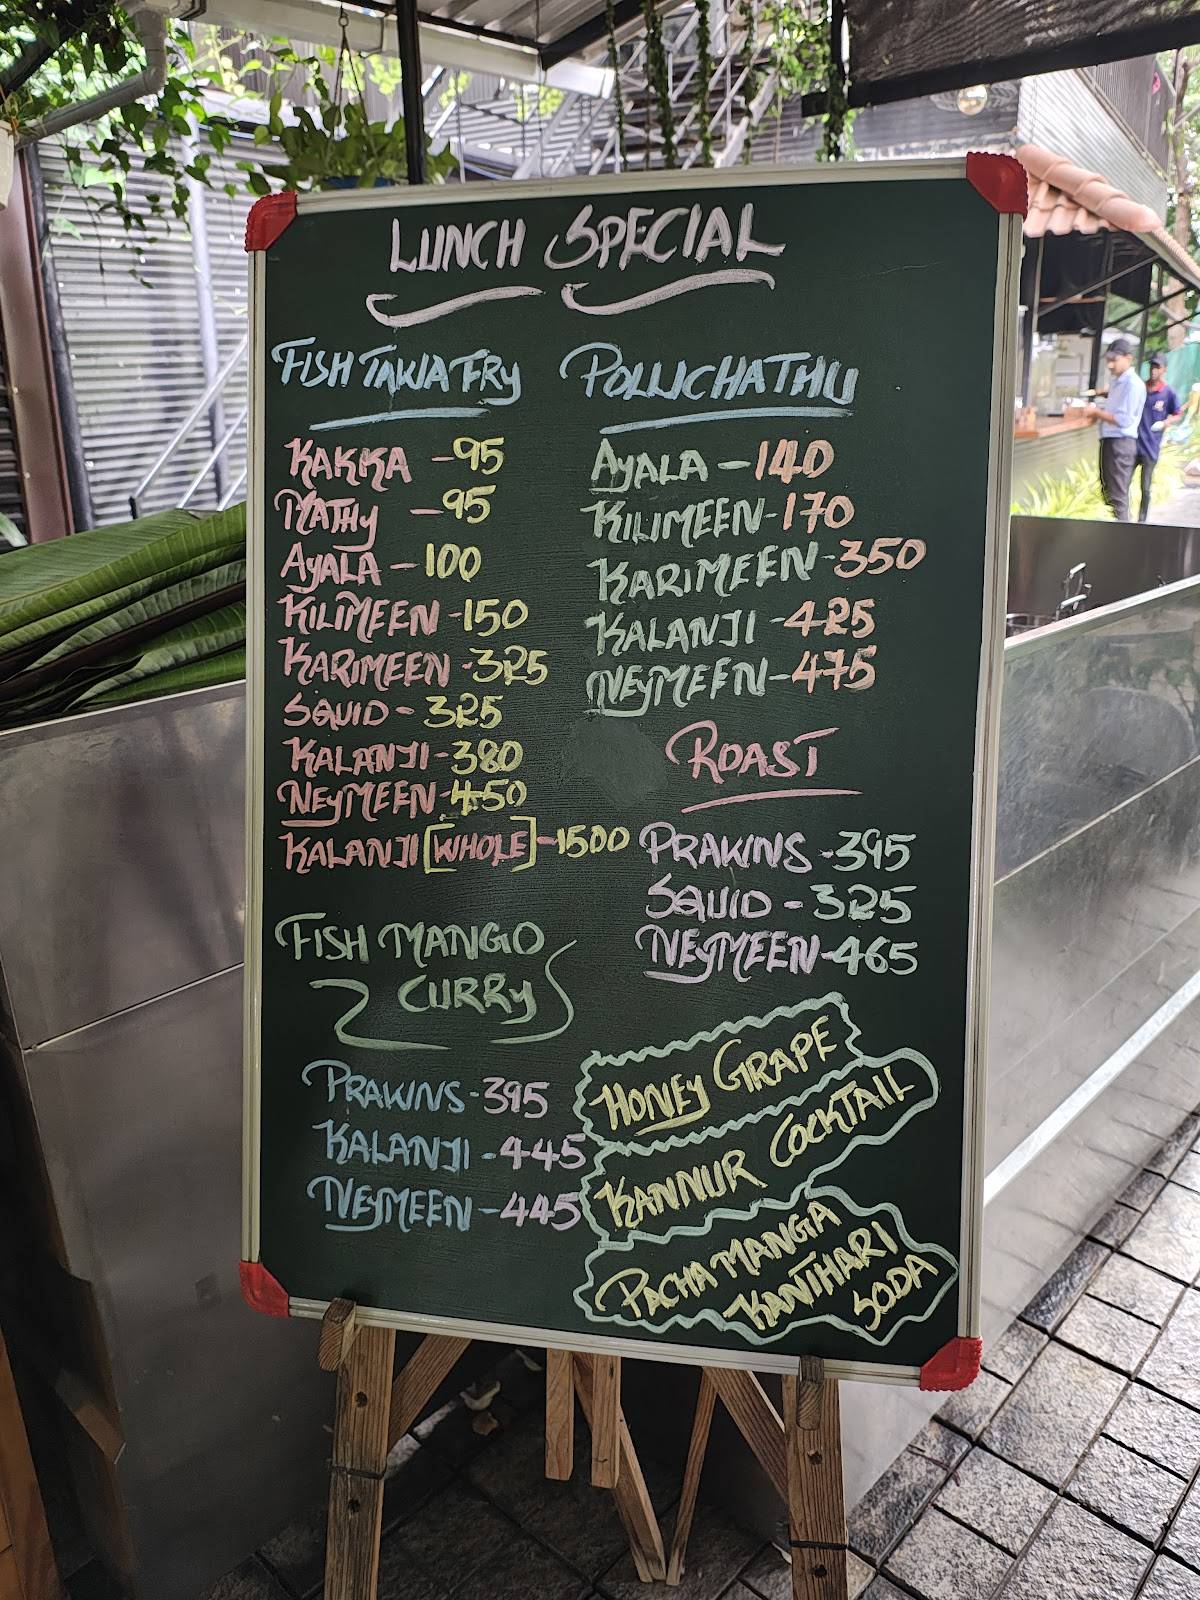 LUNCH SPECIAL
FISH TAWA FRY
KAKKA - 95
MATHY - 95
AYALA - 100
KILIMEEN - 150
KARIMEEN - 325
SQUID - 325
KALANJI - 380
NEYMEEN - 450
KALANJI [WHOLE] - 1500
FISH MANGO
CURRY
PRAWNS - 395
KALANJI - 445
NEYMEEN - 445
POLLICHATHU
AYALA - 140
KILIMEEN - 170
KARIMEEN - 350
KALANJI - 425
NEYMEEN - 475
ROAST
PRAWNS - 395
SQUID - 325
NEYMEEN - 465
HONEY GRAPE
KANNUR COCKTAIL
PACHA MANGA
KANTHARI
SODA